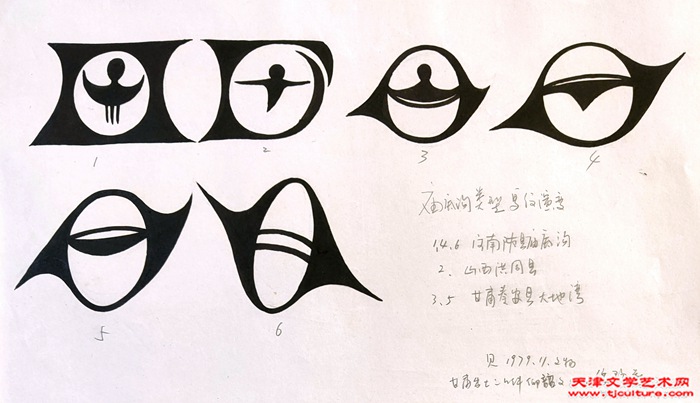 1 2 3 4
庙底沟类型鸟纹演变
1.4.6 河南陕县庙底沟
2. 山西洪同县
3.5 甘肃秦安县大地湾
5 6
见 1979.11.文物
甘肃出土
天津文学艺术网
www.tjculture.com